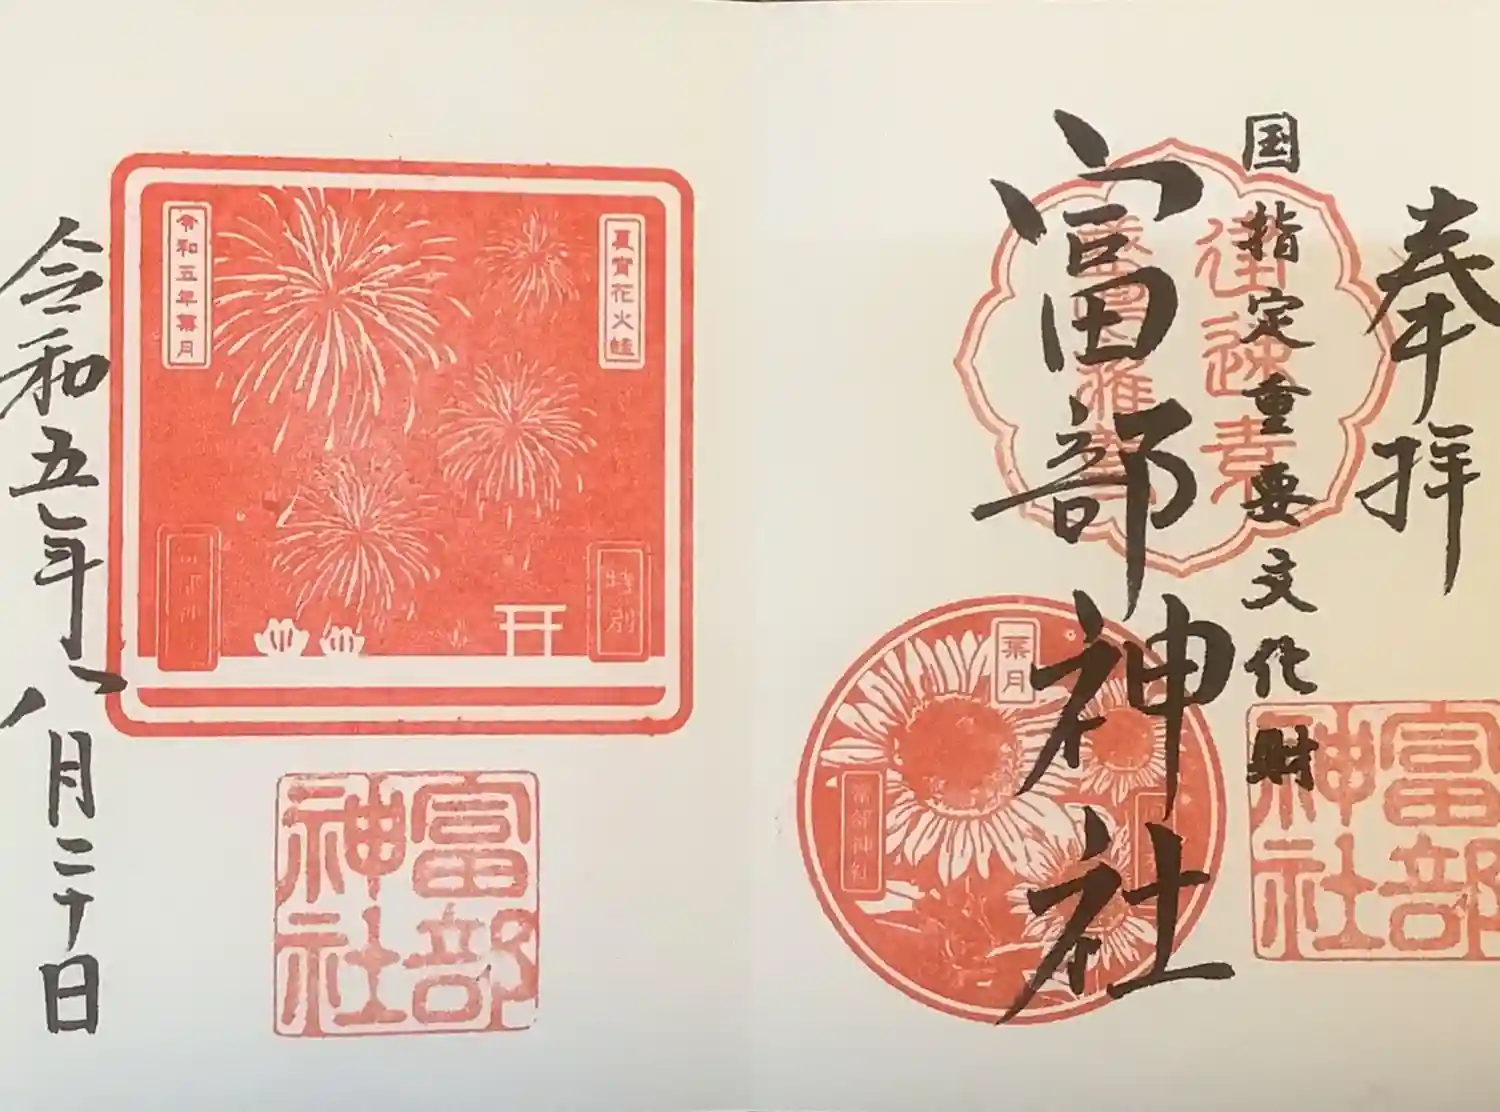 奉拝
国指定重要文化財
富部神社
進速素
葉月
富部神社
富部神社
夏宵花火蛙
特別
令和五年葉月
富部神社
令和五年八月二十日